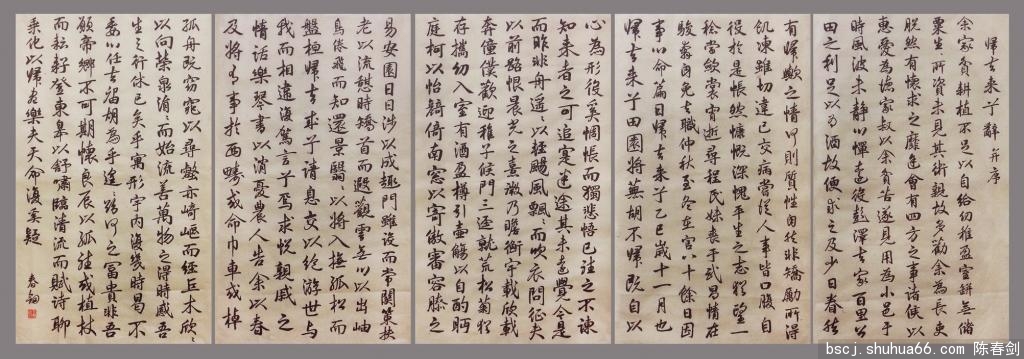 歸去来兮辭 并序
余家貧耕植不足以自給幼稚盈室缾無儲
粟生〻所資未見其術親故多勸余為長吏
脱然有懷求之靡途會有四方之事諸侯以
惠愛為德家叔以余貧苦遂見用為小邑于
時風波未静心憚遠役彭澤去家百里公
田之利足以為酒故便求之及少日眷然
有歸歟之情何則質性自然非矯勵所得
飢凍雖切違己交病嘗從人事皆口腹自
役於是悵然慷慨深愧平生之志猶望一
稔當斂裳宵逝尋程氏妹喪于武昌情在
駿奔自免去職仲秋至冬在官八十餘日因
事心命篇曰歸去来兮乙巳歲十一月也
歸去来兮田園將蕪胡不歸既自以
心為形役奚惆悵而獨悲悟已往之不諫
知来者之可追寔迷途其未遠覺今是
而昨非舟遥〻以輕颺風飄〻而吹衣問征夫
以前路恨晨光之熹微乃瞻衡宇載欣載
奔僮僕歡迎稚子候門三逕就荒松菊猶
存攜幼入室有酒盈樽引壺觴以自酌眄
庭柯以怡顔倚南窓以寄傲審容膝之
易安園日日涉以成趣門雖設而常關策扶
老以流憩時矯首而遐觀雲無心以出岫
鳥倦飛而知還景翳〻以將入撫孤松而
盤桓歸去来兮請息交以绝游世与
我而相違復駕言兮焉求悦親戚之
情話樂琴書以消憂農人告余以春
及將有事於西疇或命巾車或棹
孤舟既窈窕以尋壑亦崎嶇而經丘木欣〻
以向榮泉涓〻而始流善萬物之得時感吾
生之行休已矣乎寓形宇内復幾時曷不
委心任去留胡為乎遑〻欲何之富貴非吾
願帝鄉不可期懷良辰以孤往或植杖
而耘耔登東皋以舒嘯臨清流而賦詩聊
乘化以歸盡樂夫天命復奚疑
春釰
bscj.shuhua66.com 陈春剑